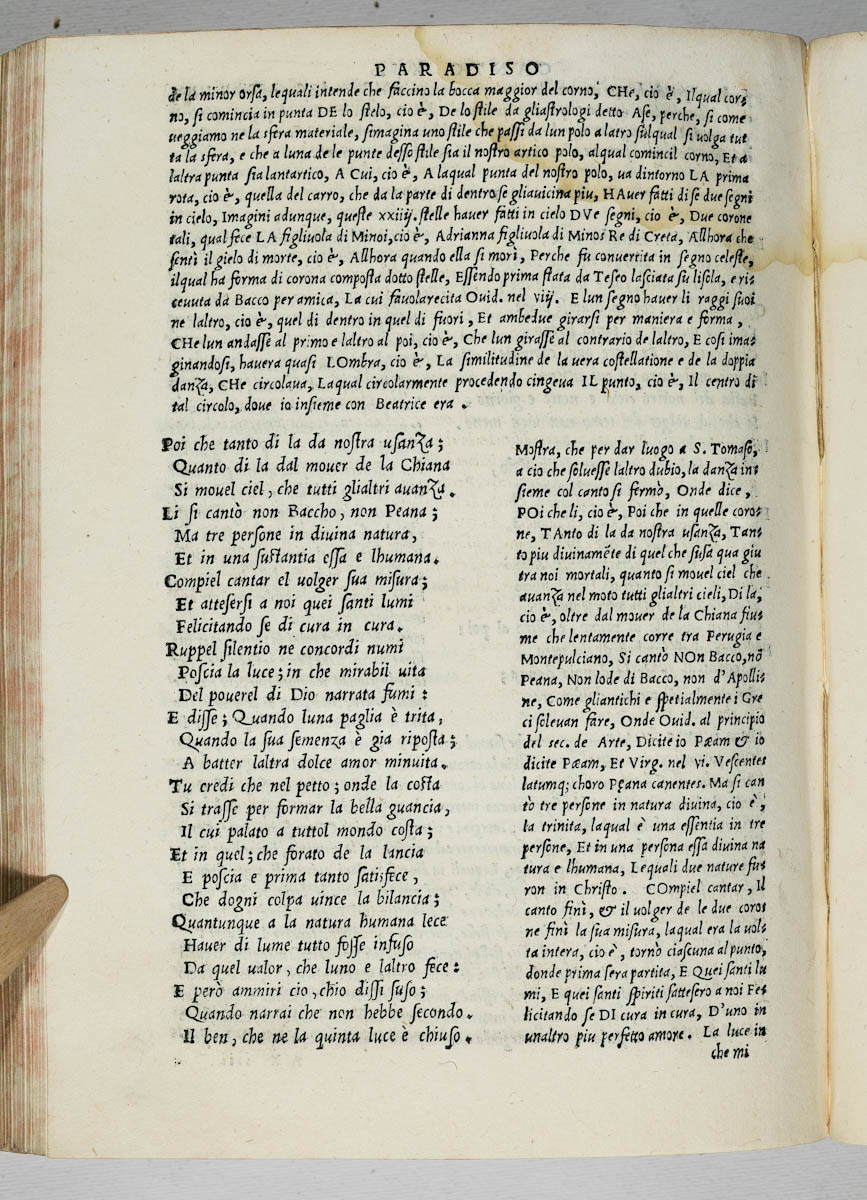 PARADISO
de la minor orsa, lequali intende che faccino la bocca maggior del corno, CHe, cio è, Ilqual cor-
no, si comincia in punta DE lo stelo, cio è, De lo stile da gliastrologi detto Ase, perche, si come
ueggiamo ne la sfera materiale, simagina uno stile che passi da lun polo a latro sulqual si uolga tut
ta la sfera, e che a luna de le punte desso stile sia il nostro artico polo, alqual comincil corno, Et a
laltra punta sia lantartico, A Cui, cio è, A laqual punta del nostro polo, ua dintorno LA prima
rota, cio è, quella del carro, che da la parte di dentro se gliauicina piu, HAuer fatti di se due segni
in cielo, Imagini adunque, queste xxiiij. stelle hauer fatti in cielo DVe segni, cio è, Due corone
tali, qual fece LA figliuola di Minoi, cio è, Adrianna figliuola di Minos Re di Creta, Allhora che
sentì il gielo di morte, cio è, Allhora quando ella si morì, Perche fu conuertita in segno celeste,
ilqual ha forma di corona composta dotto stelle, Essendo prima stata da Teseo lasciata su lisola, e ri-
ceuuta da Bacco per amica, La cui fauola recita Ouid. nel viij. E lun segno hauer li raggi suoi
ne laltro, cio è, quel di dentro in quel di fuori, Et ambedue girarsi per maniera e forma,
CHe lun andasse al primo e laltro al poi, cio è, Che lun girasse al contrario de laltro, E cosi ima-
ginandosi, hauera quasi LOmbra, cio è, La similitudine de la uera costellatione e de la doppia
danza, CHe circolaua, Laqual circolarmente procedendo cingeua IL punto, cio è, Il centro di
tal circolo, doue io insieme con Beatrice era.
Poi che tanto di la da nostra usanza;
Quanto di la dal mouer de la Chiana
Si mouel ciel, che tutti glialtri auanza.
Li si cantò non Baccho, non Peana;
Ma tre persone in diuina natura,
Et in una sustantia essa e lhumana.
Compiel cantar el uolger sua misura;
Et attesersi a noi quei santi lumi
Felicitando se di cura in cura.
Ruppel silentio ne concordi numi
Poscia la luce; in che mirabil uita
Del pouerel di Dio narrata fumi:
E disse; Quando luna paglia è trita,
Quando la sua semenza è gia riposta;
A batter laltra dolce amor minuita.
Tu credi che nel petto; onde la costa
Si trasse per formar la bella guancia,
Il cui palato a tuttol mondo costa;
Et in quel; che forato de la lancia
E poscia e prima tanto satisfece,
Che dogni colpa uince la bilancia;
Quantunque a la natura humana lece
Hauer di lume tutto fosse infuso
Da quel ualor, che luno e laltro fece:
E però ammiri cio, chio dissi suso;
Quando narrai che non hebbe secondo.
Il ben, che ne la quinta luce è chiuso.
Mostra, che per dar luogo a S. Tomaso,
a cio che soluesse laltro dubio, la danza in-
sieme col canto si fermò, Onde dice,
POi che li, cio è, Poi che in quelle coro-
ne, TAnto di la da nostra usanza, Tan-
to piu diuinamẽte di quel che susa qua giu
tra noi mortali, quanto si mouel ciel che
auanza nel moto tutti glialtri cieli, Di la,
cio è, oltre dal mouer de la Chiana fiu-
me che lentamente corre tra Perugia e
Montepulciano, Si cantò NOn Bacco, nõ
Peana, Non lode di Bacco, non d'Apolli-
ne, Come gliantichi e spetialmente i Gre
ci soleuan fare, Onde Ouid. al principio
del sec. de Arte, Dicite io Pæam & io
dicite Pæam, Et Virg. nel vi. Vescentes
latumq; choro Pęana canentes. Ma si can
tò tre persone in natura diuina, cio è,
la trinita, laqual è una essentia in tre
persone, Et in una persona essa diuina na
tura e lhumana, Lequali due nature fu-
ron in Christo. COmpiel cantar, Il
canto finì, & il uolger de le due coro-
ne finì la sua misura, laqual era la uol-
ta intera, cio è, tornò ciascuna al punto,
donde prima sera partita, E Quei santi lu
mi, E quei santi spiriti sattesero a noi Fe-
licitando se DI cura in cura, D'uno in
unaltro piu perfetto amore. La luce in
che mi